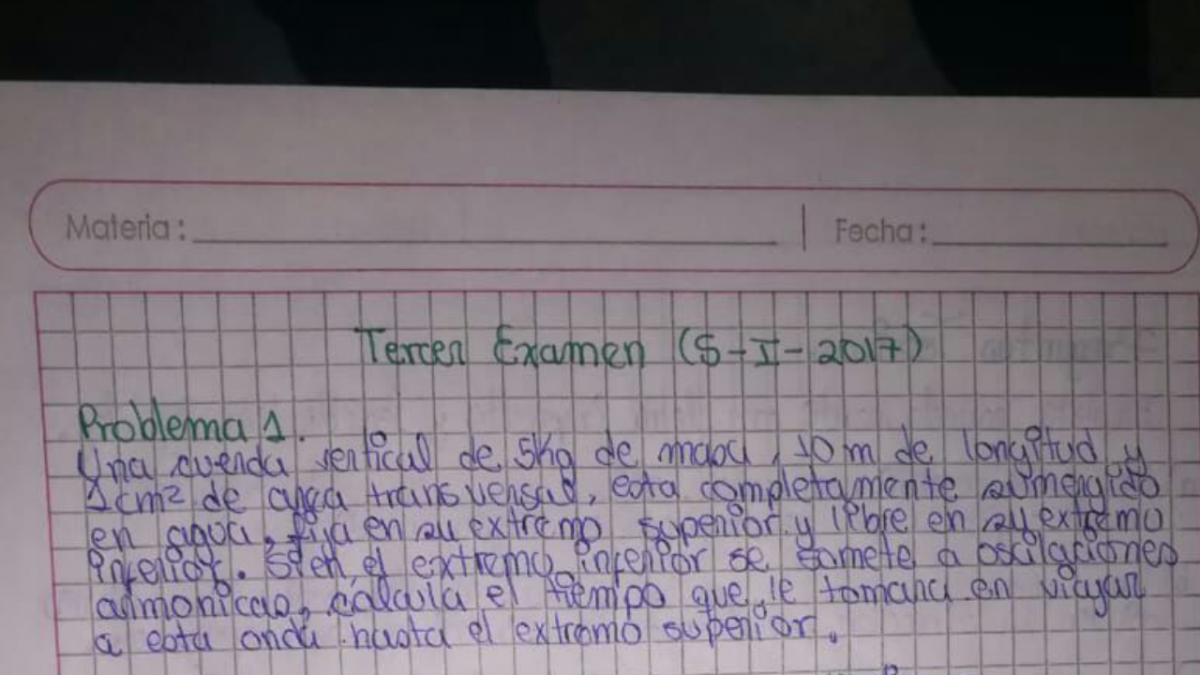 Materia: Fecha:
Tercer Examen (S-I-2017)
Problema 1.
Una cuerda vertical de 5kg de masa, 10m de longitud y
1cm² de area transversal, esta completamente sumergido
en agua, fija en su extremo superior y libre en su extremo
inferior. Si en el extremo inferior se somete a oscilaciones
armonicas, calcula el tiempo que le tomara en viajar
a esta onda hasta el extremo superior.